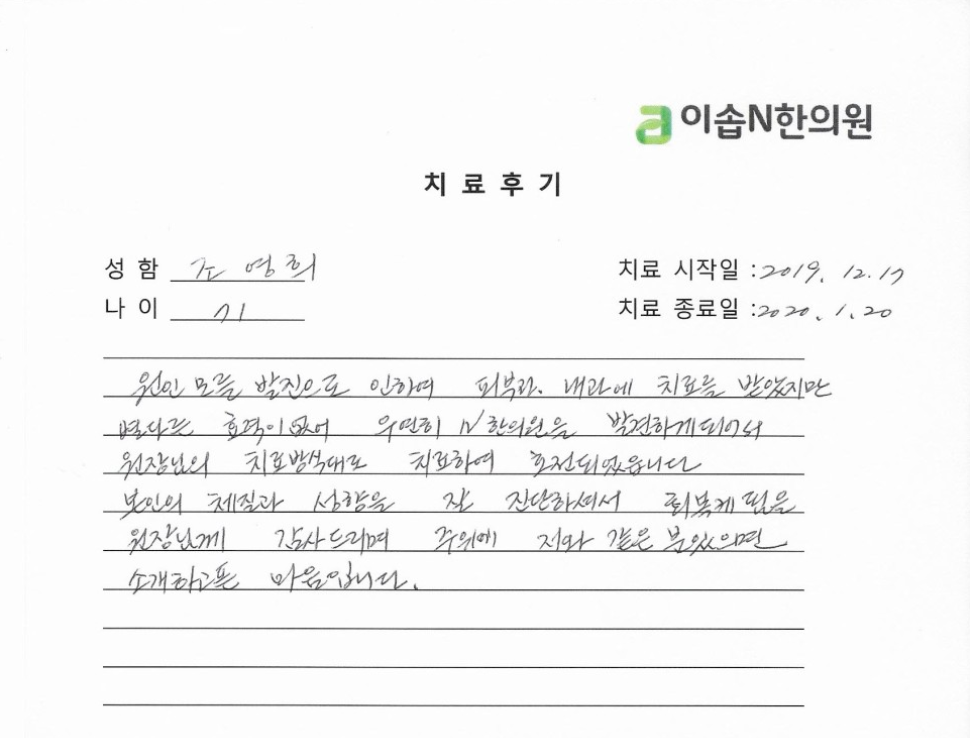 이솝N한의원
치료후기
성함 조영희
치료 시작일 : 2019. 12. 17
나이 71
치료 종료일 : 2020. 1. 20
원인 모를 발진으로 인하여 피부과. 내과에 치료를 받았지만
별다른 효력이 없어 우연히 N한의원을 발견하게되어서
원장님의 치료방식대로 치료하여 호전되었읍니다
본인의 체질과 성향을 잘 진단하셔서 회복케 됨을
원장님께 감사드리며 주위에 저와 같은 분있으면
소개하고픈 마음입니다.